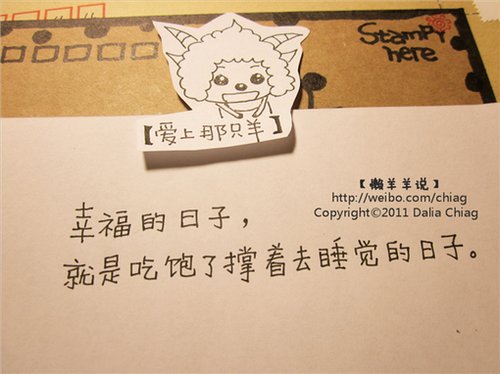 Stamp
here
【爱上那只羊】
【懒羊羊说】
http://weibo.com/chiag
Copyright©2011 Dalia Chiag
幸福的日子，
就是吃饱了撑着去睡觉的日子。